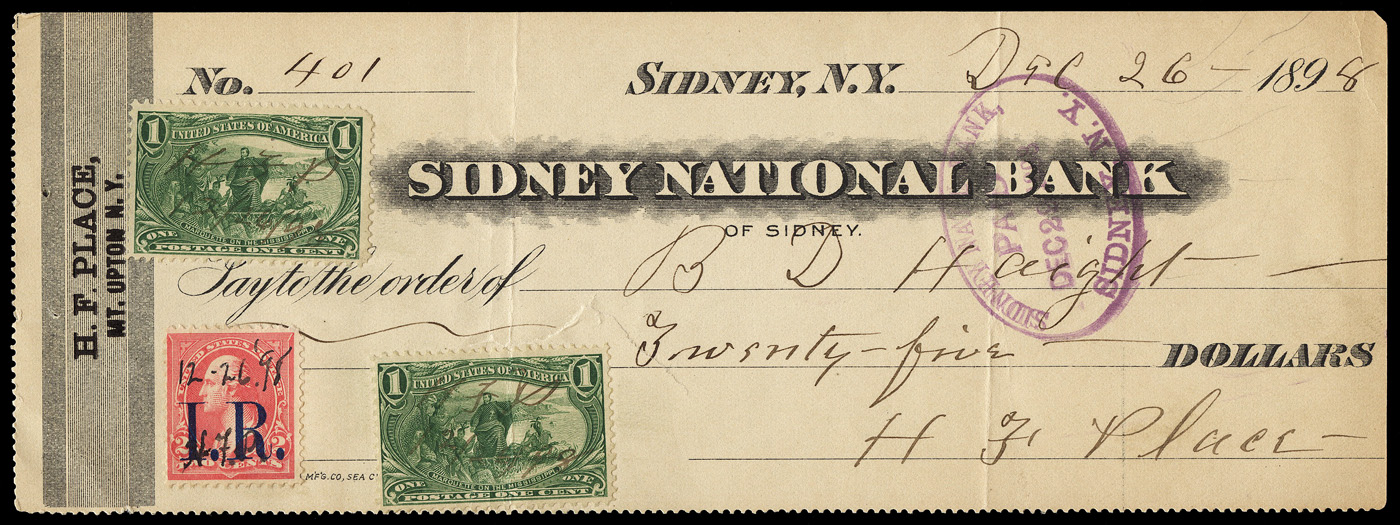 H. F. PLACE,
MT. UPTON N.Y.
No. 401
SIDNEY, N.Y. Dec 26 1898
SIDNEY NATIONAL BANK
OF SIDNEY.
Pay to the order of B D Haight
Twenty-five DOLLARS
H F Place
SIDNEY NATIONAL BANK,
PAID
DEC 2
SIDNEY, N.Y.
1 UNITED STATES OF AMERICA 1
MARQUETTE ON THE MISSISSIPPI
ONE POSTAGE ONE CENT ONE
UNITED STATES
12-26.'98
I.R.
CENTS
1 UNITED STATES OF AMERICA 1
MARQUETTE ON THE MISSISSIPPI
ONE POSTAGE ONE CENT ONE
MF'G. CO, SEA C